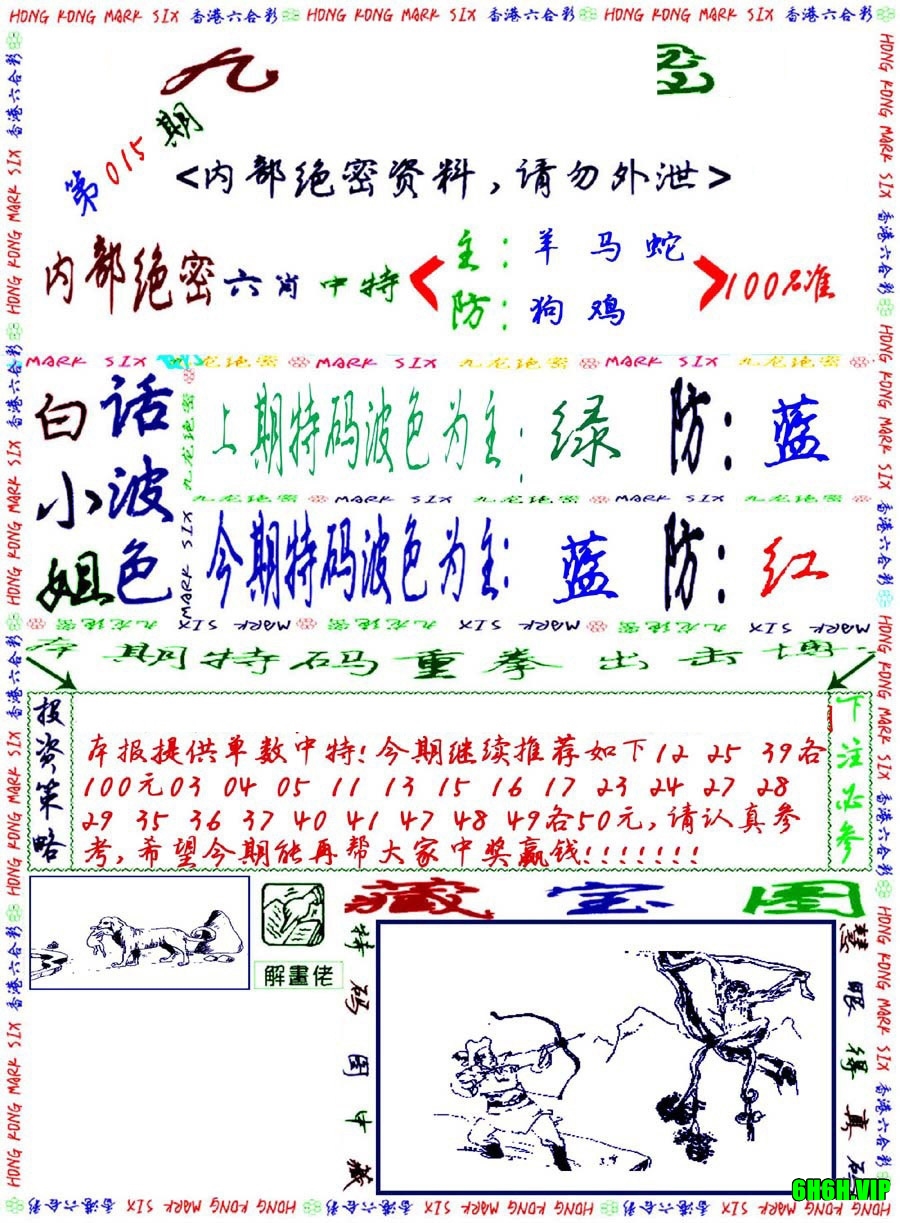 HONG KONG MARK SIX 香港六合彩 HONG KONG MARK SIX 香港六合彩 HONG KONG MARK SIX 香港六合彩
九
第015期
<内部绝密资料,请勿外泄>
内部绝密六肖 中特
主:羊 马 蛇
防:狗 鸡
100%准
MARK SIX 九龙绝密 MARK SIX 九龙绝密 MARK SIX 九龙绝密
白话
小波
姐色
上期特码波色为主:绿 防:蓝
九龙绝密 MARK SIX 九龙绝密 MARK SIX 九龙绝密
今期特码波色为主:蓝 防:红
期特码重拳出击
投资策略
本报提供单数中特!今期继续推荐如下12 25 39各
100元03 04 05 11 13 15 16 17 23 24 27 28
29 35 36 37 40 41 47 48 49各50元,请认真参
考,希望今期能再帮大家中奖赢钱!!!!!!!
下注必参
解畫佬
藏宝图
特码图中藏
慧眼得真码
6H6H.VIP
HONG KONG MARK SIX 香港六合彩